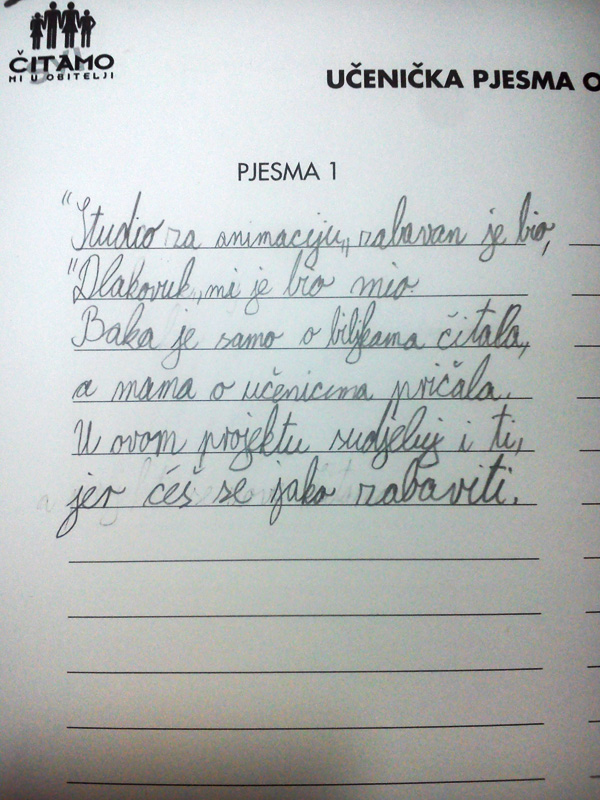 ČITAMO
MI U OBITELJI
UČENIČKA PJESMA O
PJESMA 1
"Studio za animaciju" zabavan je bio,
"Dlakovuk" mi je bio mio.
Baka je samo o biljkama čitala,
a mama o učenicima pričala.
U ovom projektu sudjeluj i ti,
jer ćeš se jako zabaviti.